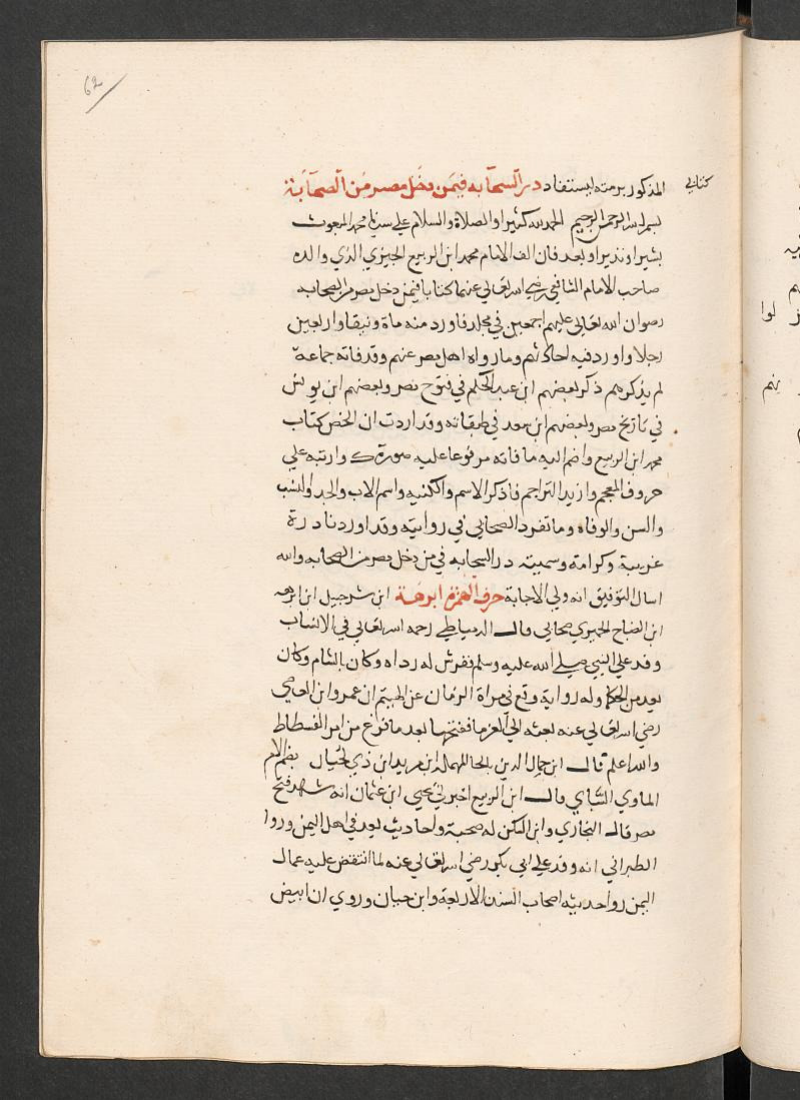 62
كتابي
المذكور برمته ليستفاد در السحابه فيمن دخل مصر من الصحابة
بسم الله الرحمن الرحيم الحمد لله كثيرا والصلاة والسلام على سيدنا محمد المبعوث
بشيرا ونذيرا وبعد فان الف الامام محمد ابن الربيع الجيزي الذي والده
صاحب الامام الشافعي رضي الله تعالي عنهما كتابا فيمن دخل مصر من الصحابه
رضوان الله تعالى عليهم اجمعين في مجلد فاورد منه ماة ونيفا واربعين
رجلا واورد فيه احاديثهم وما رواه اهل مصر عنهم وقد فاته جماعة
لم يذكرهم ذكر بعضهم ابن عبد الحكم في فتوح مصر وبعضهم ابن يونس
في تاريخ مصر وبعضهم ابن سعد في طبقاته وقد اردت ان الخص كتاب
محمد ابن الربيع واضم اليه ما فاته مرقوعا عليه صورة ك وارتبه علي
حروف المعجم وازيد التراجم فاذكر الاسم والكنيه واسم الاب والجد والنسب
والسن والوفاه وما تفرد الصحابي في روايته وقد اورد نادرة
غريبة وكرامة وسميته در السحابه في من دخل مصر من الصحابه والله
اسال التوفيق انه ولي الاجابة حرف الهمزة ابرهة ابن شرحبيل ابن ابرهه
ابن الصباح الحميري صحابي قال الدمياطي رحمه الله تعالي في الانساب
وفد علي النبي صلى الله عليه وسلم ففرش له رداه وكان بالشام وكان
يعد من الحكما وله رواية وقع في مراة الزمان عن الهيثم ان عمرو ابن العاصي
رضي الله تعالي عنه بعثه الي الفرما ففتحها بعد ما فرغ من امر الفسطاط
والله اعلم قال ابن جمال الدين بالحا المهمله ابن مريد ابن ذي لحيان بضم اللام
الماوي السباي قال ابن الربيع اخبرني يحيي ابن عثمان انه شهد فتح
مصر قال البخاري وابن السكن له صحبة واحاديث يعد في اهل اليمن وروا
الطبراني انه وفد علي ابي بكر رضي الله تعالي عنه لما انتقض عليه عمال
اليمن روا حديثه اصحاب السنن الاربعة وابن حبان وروي ان ابيض